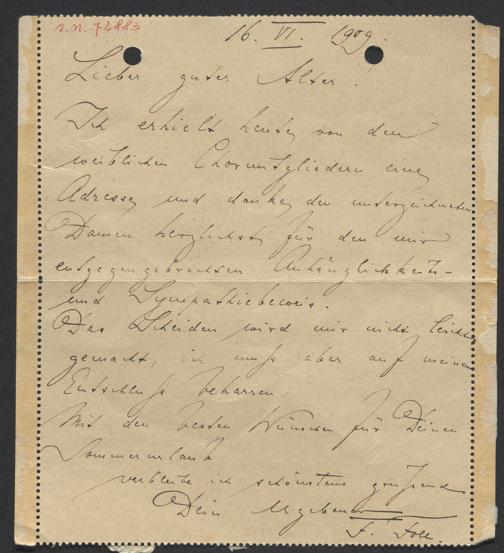 I.N. 72883
16. VI. 1909.
Lieber guter Alter!
Ich erhielt heute von den
weiblichen Chormitgliedern eine
Adresse und danke den unterzeichneten
Damen herzlichst für den mir
entgegengebrachten Anhänglichkeits-
und Sympathiebeweis.
Das Scheiden wird mir nicht leicht
gemacht, ich muss aber auf meinem
Entschluss beharren.
Mit den besten Wünschen für Deinen
Sommerurlaub
verbleibe ich schönstens grüßend
Dein ergebener
F.